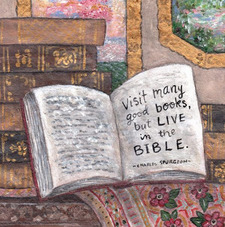 Visit many
good books,
but LIVE
in the
BIBLE.
~CHARLES SPURGEON~